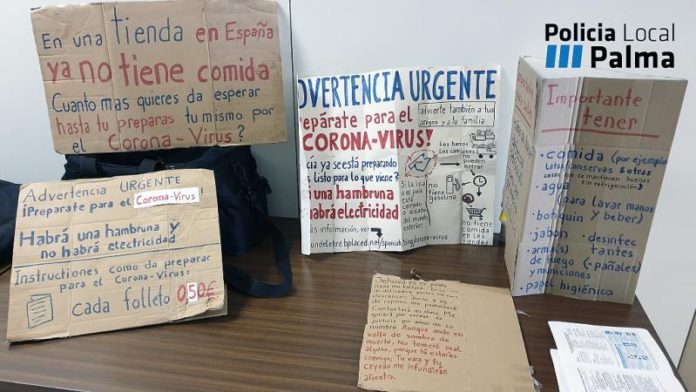 En una tienda en España
ya no tiene comida
Cuanto mas quieres da esperar
hasta tu preparas tu mismo por
el Corona-Virus?
Policia Local
Palma
ADVERTENCIA URGENTE
epárate para el
CORONA-VIRUS!
advierte también a tus
amigos y a tu familia
cía ya se está preparando
s listo para lo que viene?
rá una hambruna
habrá electricidad
más información, ver
Los barcos,
los camiones
no
pueden
entrar
Si la ida
a país
no
tienes
gasolina
no
tiene
comida
Importante
tener
comida (por ejemplo
latas conservas & otras
cosas que se mantienen buenas
sin refrigeración)
agua (para lavar manos
y beber)
botiquín
jabon desinfec
tantes
arma(s)
de fuego (pañales)
y municiones
papel higiénico
Advertencia URGENTE
¡Preparate para el Corona-Virus!
Habrá una hambruna y
no habrá electricidad
Instructiones como de preparar
para el Corona-Virus:
cada folleto 0,50€
Jehová es mi pastor
nada me faltará
descansar. Junto a
Confortará mi alma. Me
guiará por sendas de
justicia por amor de su
nombre Aunque ande en
valle de sombra de
muerte, No temeré mal
alguno, porque tú estarás
conmigo; Tu vara y tu
cayado me infundirán
aliento.